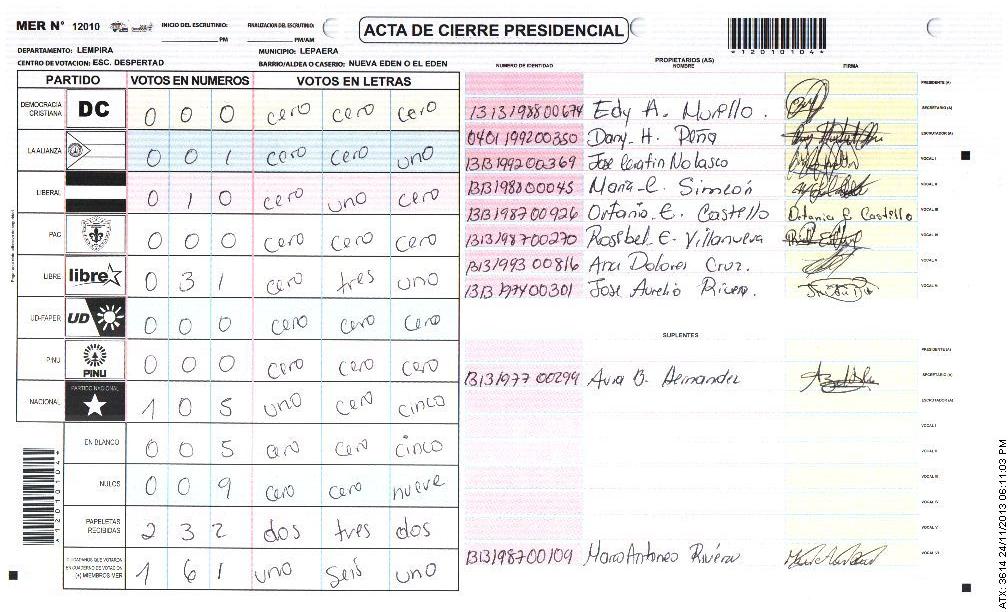 MER N° 12010
INICIO DEL ESCRUTINIO:
PM
FINALIZACION DEL ESCRUTINIO:
PM/AM
ACTA DE CIERRE PRESIDENCIAL
*1201010 4*
DEPARTAMENTO: LEMPIRA
MUNICIPIO: LEPAERA
CENTRO DE VOTACION: ESC. DESPERTAD
BARRIO/ALDEA O CASERIO: NUEVA EDEN O EL EDEN
PARTIDO VOTOS EN NUMEROS VOTOS EN LETRAS
DEMOCRACIA CRISTIANA DC 0 0 0 cero cero cero
LA ALIANZA 0 0 1 cero cero uno
LIBERAL 0 1 0 cero uno cero
PAC 0 0 0 cero cero cero
LIBRE libre 0 3 1 cero tres uno
UD-FAPER UD 0 0 0 cero cero cero
PINU PINU 0 0 0 cero cero cero
NACIONAL PARTIDO NACIONAL 1 0 5 uno cero cinco
EN BLANCO 0 0 5 cero cero cinco
NULOS 0 0 9 cero cero nueve
PAPELETAS RECIBIDAS 2 3 2 dos tres dos
CIUDADANOS QUE VOTARON
EN CUADERNO DE VOTACION
(+) MIEMBROS MER 1 6 1 uno seis uno
PROPIETARIOS (AS)
NUMERO DE IDENTIDAD NOMBRE FIRMA
PRESIDENTE (A)
1313198800674 Edy A. Murillo. SECRETARIO (A)
0401199200350 Dany. H. Peña ESCRUTADOR (A)
1313199200369 Jose Nolasco VOCAL I
1313198800045 Maria. C. Simeón VOCAL II
1313198700926 E. Castello Castello VOCAL III
1313198700270 Rosibel. E. Villanueva VOCAL IV
1313199300816 Ana Dolores Cruz. VOCAL V
1313197400301 Jose Aurelio Rivera. VOCAL VI
SUPLENTES
PRESIDENTE (A)
1313197700299 SECRETARIO (A)
ESCRUTADOR (A)
VOCAL I
VOCAL II
VOCAL III
VOCAL IV
VOCAL V
1313198700109 Marco Antonio Rivera VOCAL VI
ATX: 3614 24/11/2013 06:11:03 PM